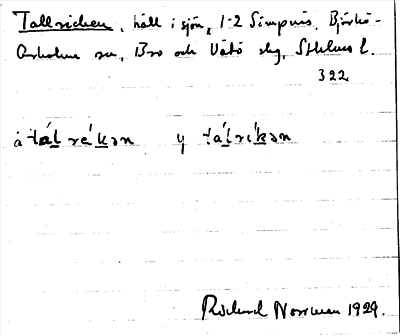 Tallricken, håll i sjön, 1-2 Simpnäs, Björkö-
Arholma sn, Bro och Vätö skg, Sthlms l.
322
å tál ré kən y tálríkən
Rickard Norrman 1929.